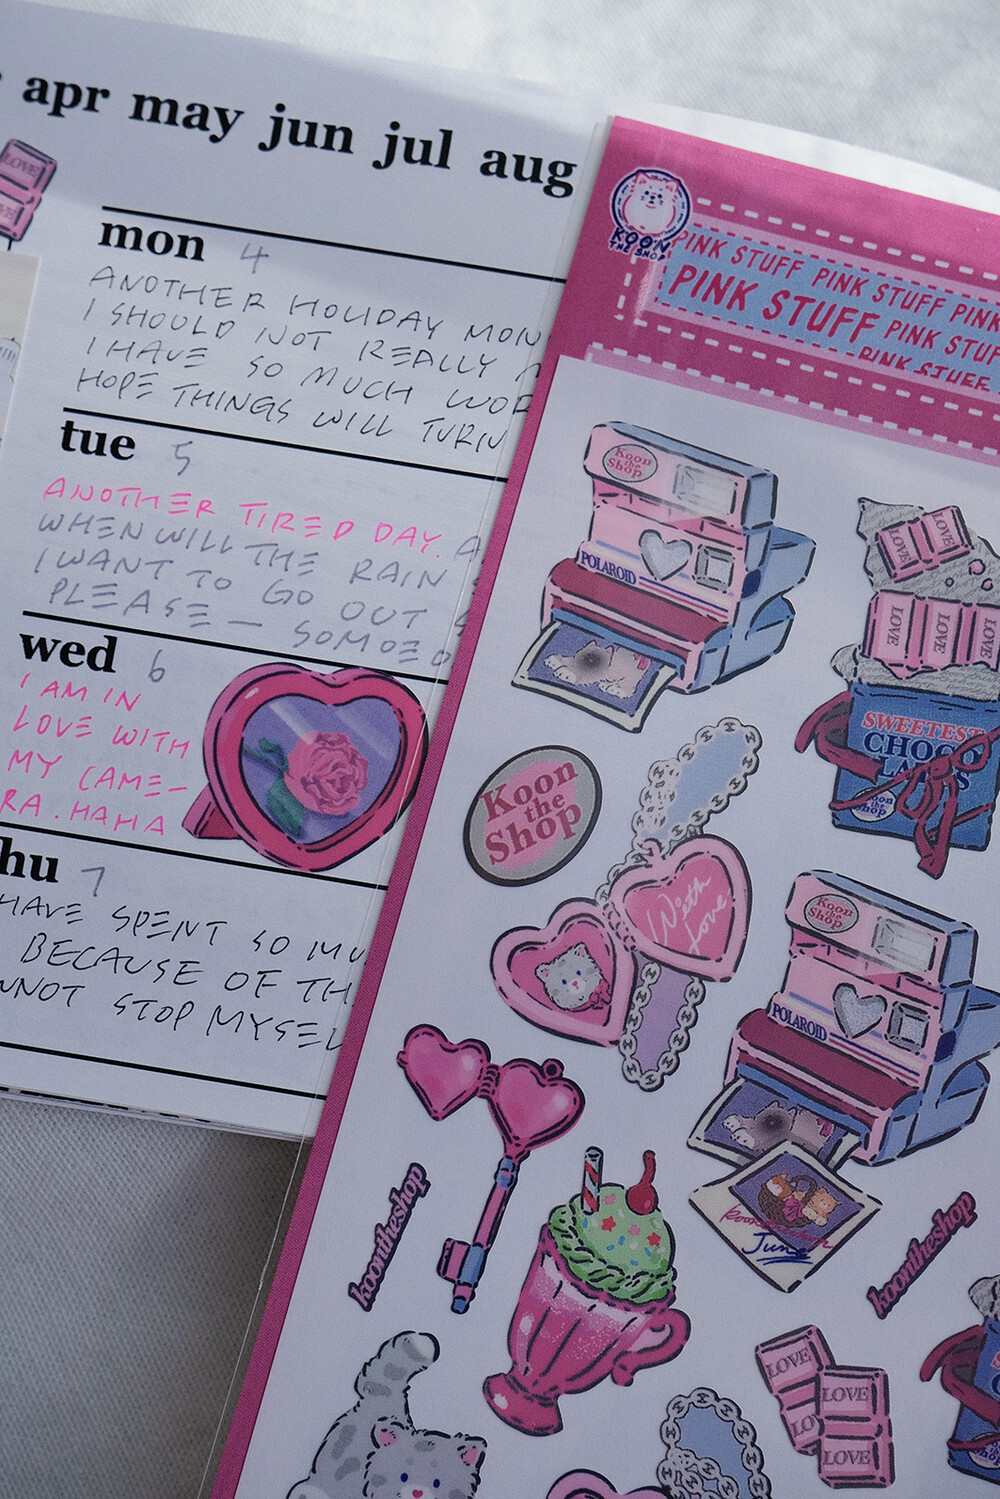 apr may jun jul aug
LOVE
mon 4
ANOTHER HOLIDAY MON
I SHOULD NOT REALLY
I HAVE SO MUCH WOR
HOPE THINGS WILL TURN
tue 5
ANOTHER TIRED DAY. A
WHEN WILL THE RAIN
I WANT TO GO OUT
PLEASE — SOMOEO
wed 6
I AM IN
LOVE WITH
MY CAME-
RA. HAHA
hu 7
HAVE SPENT SO MU
BECAUSE OF TH
NNOT STOP MYSEL
KOON
THE SHOP
PINK STUFF PINK STUFF PINK
PINK STUFF PINK STUF
PINK STUFF
Koon
the
Shop
POLAROID
LOVE LOVE
LOVE LOVE LOVE
SWEETEST
CHOCO
LATES
Koon
the
Shop
Koon
the
Shop
With
Love
Koon
the
Shop
POLAROID
June
koontheshop
koontheshop
LOVE
LOVE
LO
LOVE